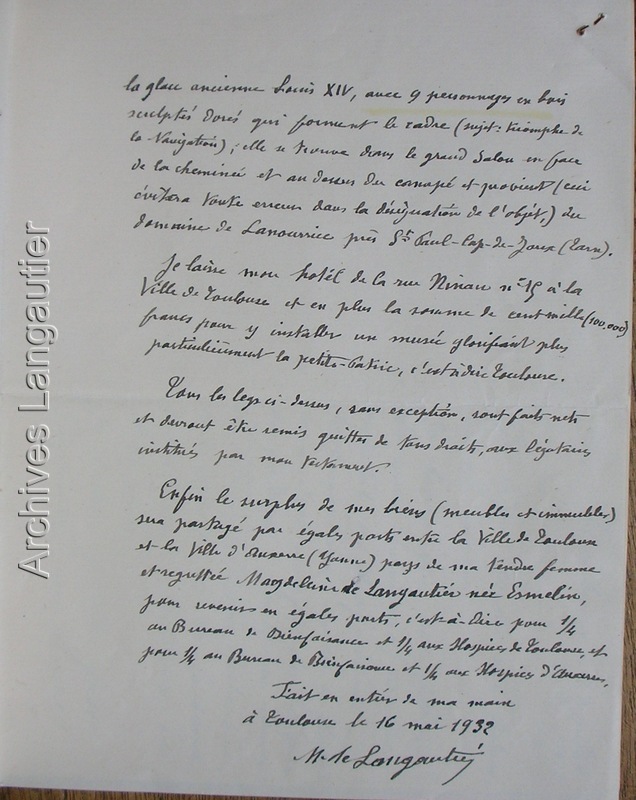 la glace ancienne Louis XIV, avec 9 personnages en bois
sculptés dorés qui forment le cadre (sujet: triomphe de
la Navigation); elle se trouve dans le grand Salon en face
de la cheminée et au dessus du canapé et provient (ceci
évitera toute erreur dans la désignation de l'objet,) du
domaine de Lanourrice près St Paul-Cap-de-Joux (Tarn).
Je laisse mon hôtel de la rue Ninau n° 15 à la
Ville de Toulouse et en plus la somme de cent mille (100.000)
francs pour y installer un musée glorifiant plus
particulièrement la petite-Patrie, c'est à dire Toulouse.
Tous les legs ci-dessus, sans exception, sont faits nets
et devront être remis quittes de tous droits, aux légataires
institués par mon testament.
Enfin le surplus de mes biens (meubles et immeubles)
sera partagé par égales parts entre la Ville de Toulouse
et la Ville d'Auxerre (Yonne) pays de ma tendre femme
et regrettée Magdeleine de Langautier née Esmelin,
pour revenir en égales parts, c'est-à-dire pour 1/4
au Bureau de Bienfaisance et 1/4 aux Hospices de Toulouse, et
pour 1/4 au Bureau de Bienfaisance et 1/4 aux Hospices d'Auxerre,
Fait en entier de ma main
à Toulouse le 16 mai 1932
M. de Langautier
Archives Langautier